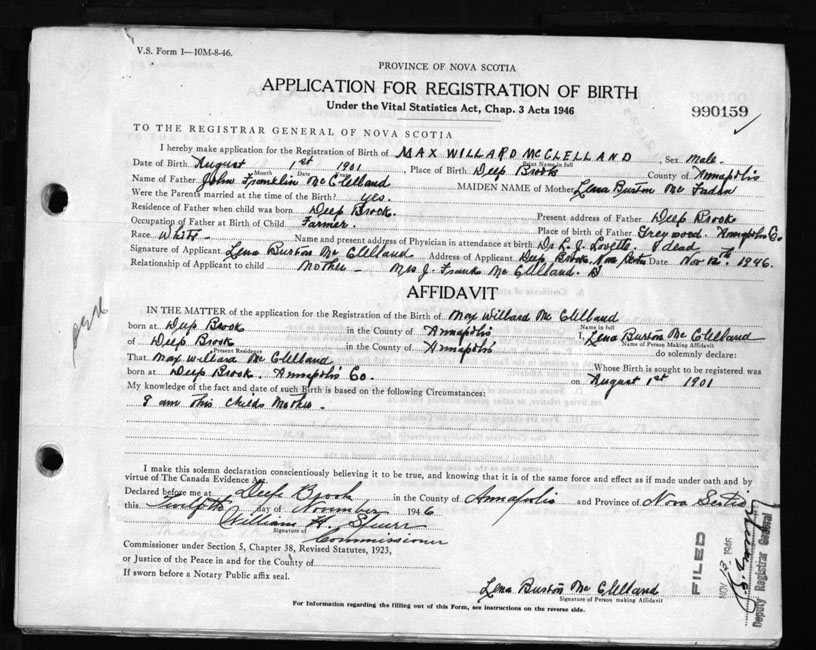 V.S. Form 1—10M-8-46.
PROVINCE OF NOVA SCOTIA
APPLICATION FOR REGISTRATION OF BIRTH
Under the Vital Statistics Act, Chap. 3 Acts 1946
990159
TO THE REGISTRAR GENERAL OF NOVA SCOTIA
I hereby make application for the Registration of Birth of MAX WILLARD McCLELLAND, Sex Male
Print Name in full
Date of Birth August 1st 1901, Place of Birth Deep Brook County of Annapolis
Month Date Year
Name of Father John Franklin McClelland MAIDEN NAME of Mother Lena Burton Mc Faden
Were the Parents married at the time of Birth? yes.
Residence of Father when child was born Deep Brook. Present address of Father Deep Brook
Occupation of Father at Birth of Child Farmer. Place of birth of Father Greywood. Annapolis Co.
Race White Name and present address of Physician in attendance at birth Dr L. J. Lovette. dead
Signature of Applicant Lena Burton McClelland Address of Applicant Deep Brook, Nova Scotia Date Nov 12th, 1946.
Relationship of Applicant to child Mother Mrs J. Frank McClelland.
AFFIDAVIT
IN THE MATTER of the application for the Registration of the Birth of Max Willard McClelland
Name in full
born at Deep Brook in the County of Annapolis I, Lena Burton McClelland
Name of Person Making Affidavit
of Deep Brook in the County of Annapolis do solemnly declare:
Present Residence
That Max Willard McClelland Whose Birth is sought to be registered was
born at Deep Brook. Annapolis Co. on August 1st 1901
My knowledge of the fact and date of such Birth is based on the following Circumstances:
I am this childs Mother.
I make this solemn declaration conscientiously believing it to be true, and knowing that it is of the same force and effect as if made under oath and by
virtue of The Canada Evidence Act.
Declared before me at Deep Brook in the County of Annapolis and Province of Nova Scotia
this Twelfth day of November 1946
William H. Spurr
Signature of
Commissioner
Commissioner under Section 5, Chapter 38, Revised Statutes, 1923,
or Justice of the Peace in and for the County of
If sworn before a Notary Public affix seal.
Lena Burton McClelland
Signature of Person making Affidavit
For Information regarding the filling out of this Form, see instructions on the reverse side.
FILED
NOV 13 1946
Deputy Registrar General